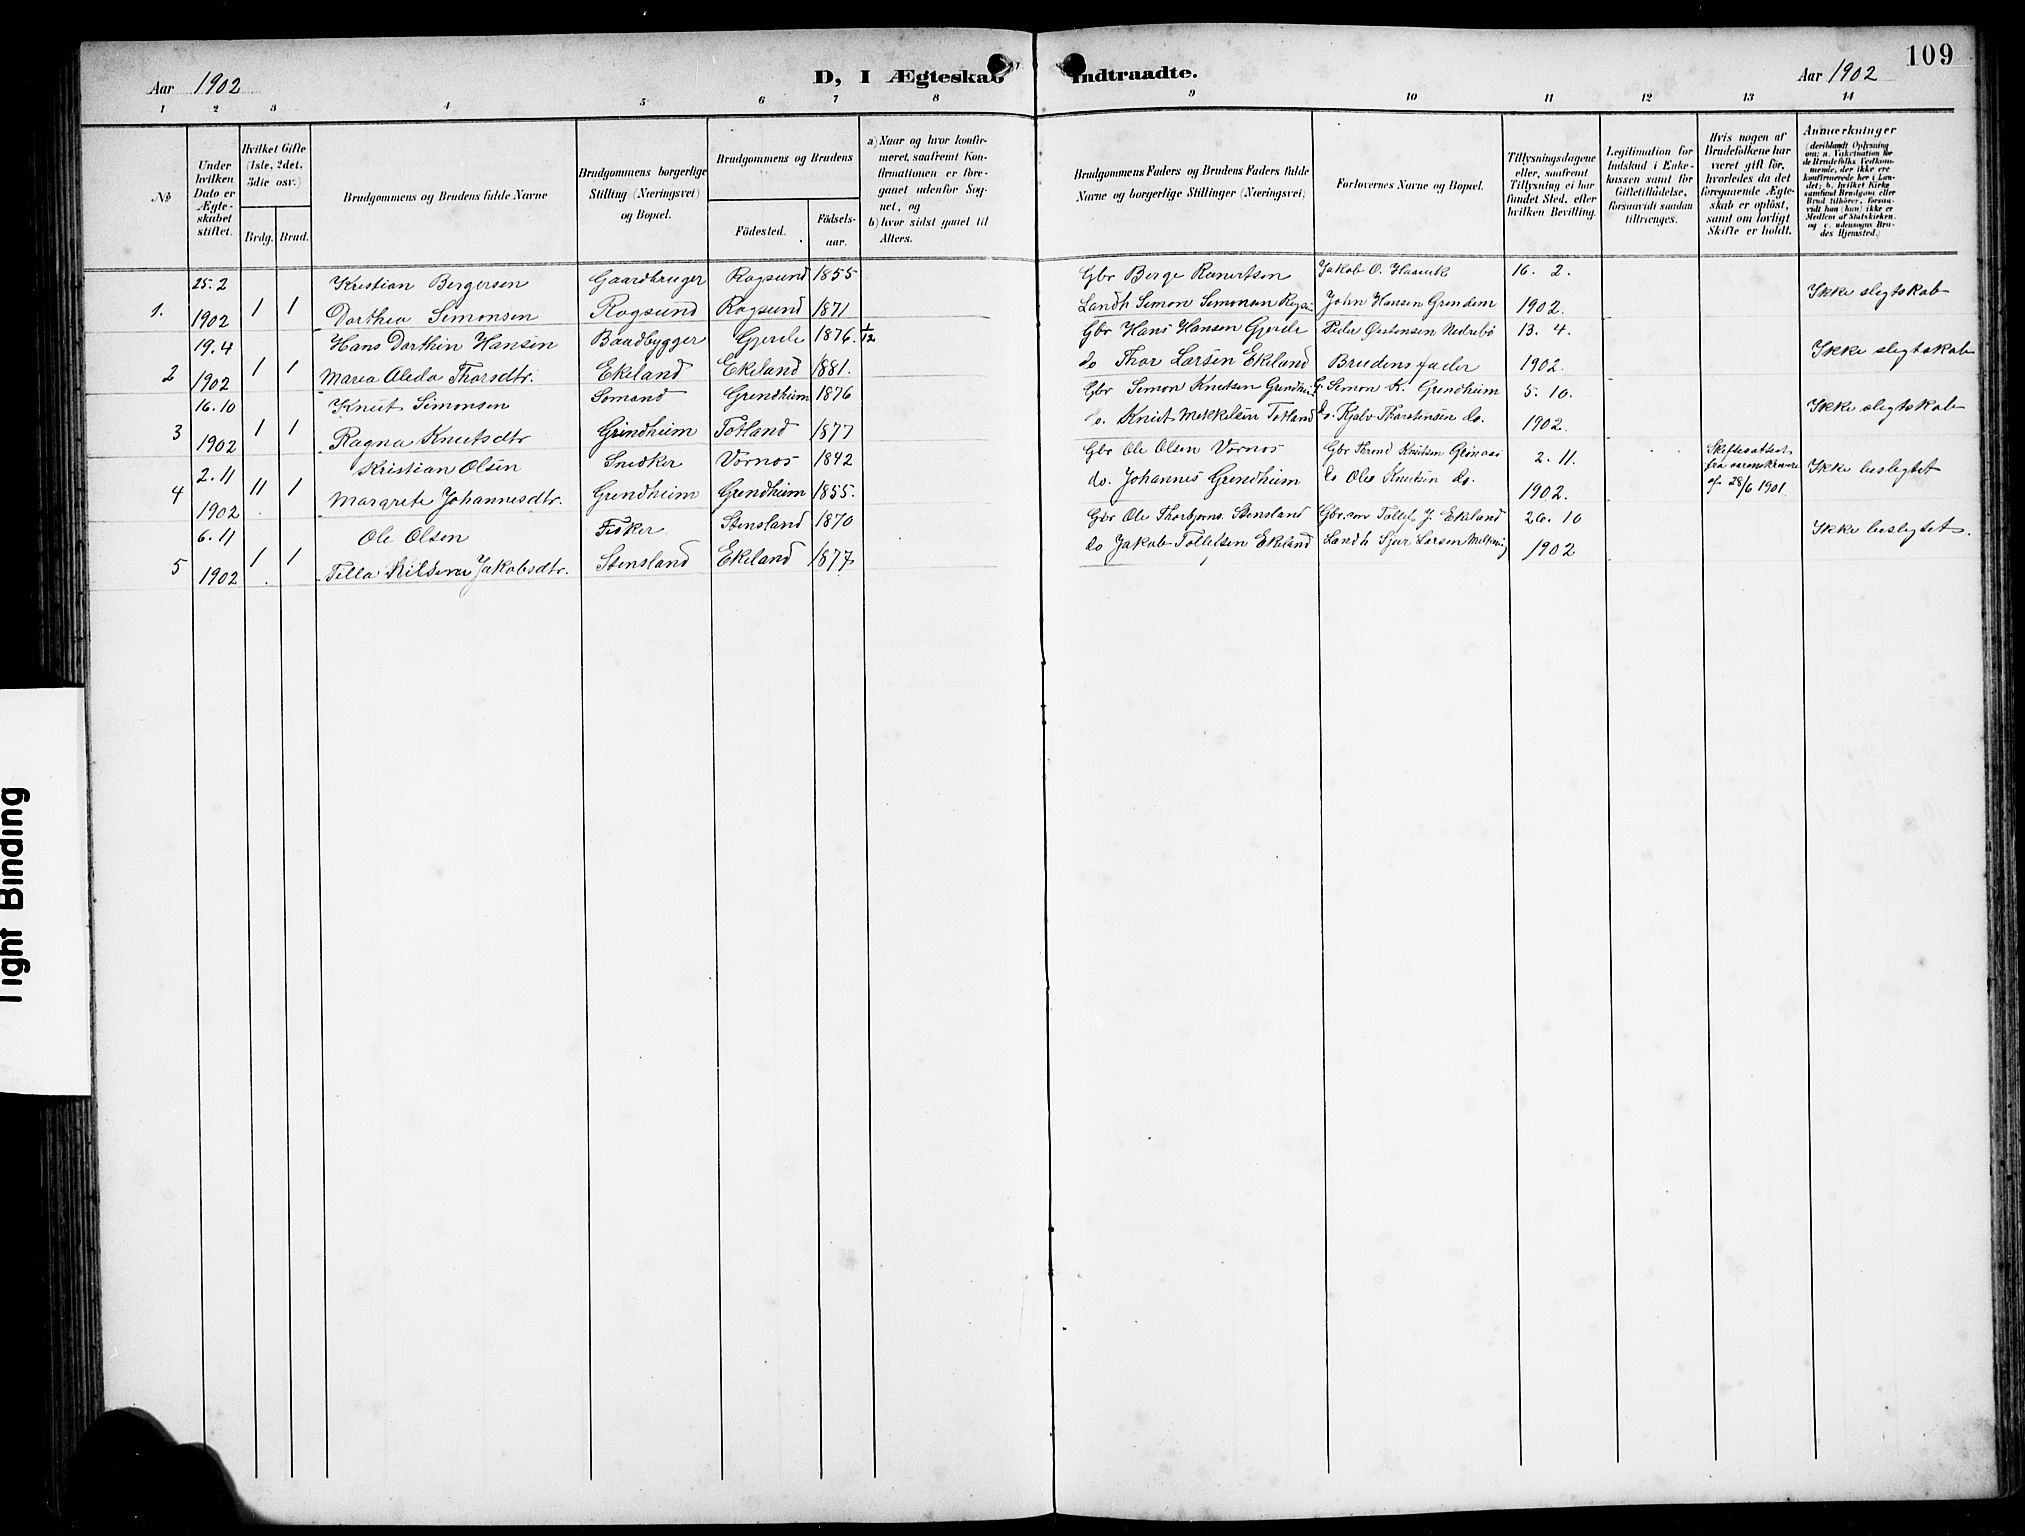 109
Aar 1902
D, I Ægteskab Indtraadte.
Aar 1902
1 2 3 4 5 6 7 8 9 10 11 12 13 14
No
Under hvilken Dato er Ægteskabet stiftet.
Hvilket Gifte (1ste, 2det, 3die osv.)
Brdg. Brud.
Brudgommens og Brudens fulde Navne
Brudgommens borgerlige Stilling (Næringsvei) og Bopæl.
Brudgommens og Brudens
Födested. Födsels-aar.
a) Naar og hvor konfirmeret, saafremt Konfirmationen er foregaaet udenfor Sognet, og
b) hvor sidst gaaet til Alters.
Brudgommens Faders og Brudens Faders fulde Navne og borgerlige Stillinger (Næringsvei)
Forlovernes Navne og Bopæl.
Tillysningsdagene eller, saafremt Tillysning ei har fundet Sted, efter hvilken Bevilling.
Legitimation for Indskud i Enkekassen samt for Giftetilladelse, forsaavidt saadan tiltrænges.
Hvis nogen af Brudefolkene har været gift för, hvorledes da det foregaaende Ægteskab er oplöst, samt om lovligt Skifte er holdt.
Anmærkninger (deriblandt Oplysning om: a. Vakcination for de Brudefolks Vedkommende, der ikke ere konfirmerede her i Landet; b. hvilket Kirkesamfund Brudgom eller Brud tilhörer, forsaavidt han (hun) ikke er Medlem af Statskirken. og c. udensogns Brudes Hjemsted.)
25. 2 Kristian Bergersen Gaardbruger Rogsund 1855 Gbr Berge Jakob O. 16. 2.
1. 1902 1 1 Dorthea Simonsen Rogsund Rogsund 1871 Landh Simon Simonsen John Hansen Grendem 1902. Ikke slegtskab
19. 4 Hans Dorthin Hansen Baadbygger Gjerde 1876. 1/12 Gbr Hans Hansen Gjerde Peder Nedrebö 13. 4.
2 1902 1 1 Maria Alida Thorsdtr. Ekeland Ekeland 1881. do Thor Larsen Ekeland Brudens fader 1902. Ikke slegtskab
16. 10 Knut Simonsen Sömand Grendheim 1876 Gbr Simon Knutsen Simon K. Grendheim 5. 10.
3 1902 1 1 Ragna Knutsdtr Grindheim Totland 1877 do. Knut Mikkelsen Totland do. Thorstensen do. 1902. Ikke slegtskab
2. 11 Kristian Olsen Snedker Vornos 1842 Gbr Ole Olsen Vornos Gbr Knutsen 2. 11. Skifteattest fra
4 1902 11 1 Margrete Johannesdtr. Grendheim Grendheim 1855. do. Johannes Grendheim do Ole Knutsen do. 1902. af 28/6 1901 Ikke beslegtet
6. 11 Ole Olsen Fisker Stensland 1870 Gbr Ole Thorbjörns. Stensland J. Ekeland 26. 10
5 1902 1 1 Jakobsdtr. Stensland Ekeland 1877 do Jakob Tollefsen Ekeland Landh Sjur Larsen 1902 Ikke beslegtet.
Tight Binding